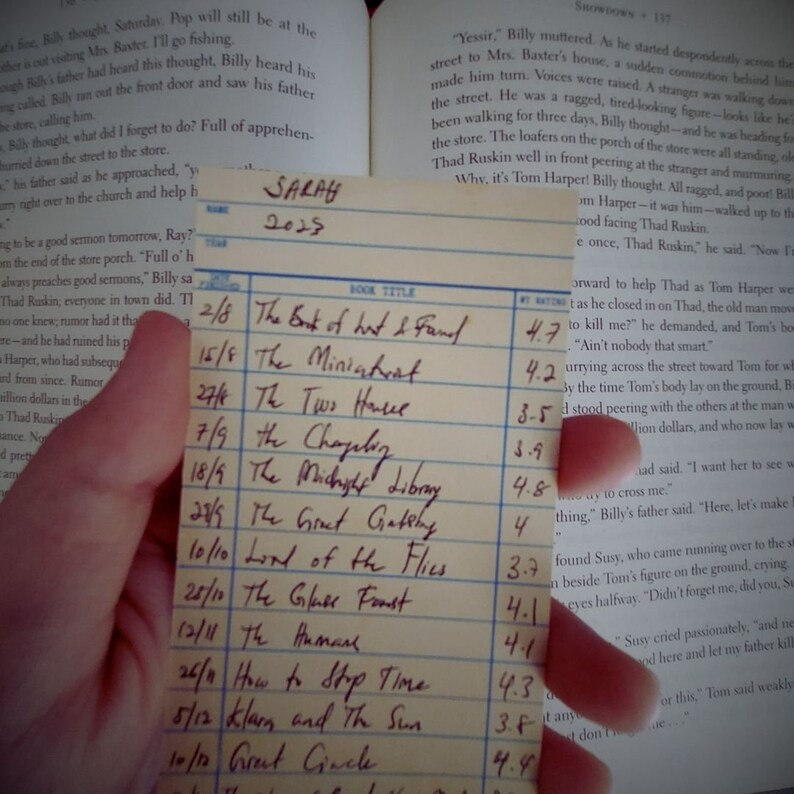 SHOWDOWN • 157
fine, Billy thought, Saturday. Pop will still be at the
is out visiting Mrs. Baxter. I'll go fishing.
Billy's father had heard this thought, Billy heard his
called. Billy ran out the front door and saw his father
the store, calling him.
Billy thought, what did I forget to do? Full of apprehen-
hurried down the street to the store.
his father said as he approached,
right over to the church and help
to be a good sermon tomorrow, Ray?
the end of the store porch. "Full o'
always preaches good sermons," Billy
Thad Ruskin; everyone in town did.
no one knew; rumor had it
and he had ruined his
Harper, who had
from since. Rumor
million dollars in the
Thad Ruskin;
"Yessir," Billy muttered. As he started despondently across the
street to Mrs. Baxter's house, a sudden commotion behind him
made him turn. Voices were raised. A stranger was walking down
the street. He was a ragged, tired-looking figure—looks like he's
been walking for three days, Billy thought—and he was heading for
the store. The loafers on the porch of the store were all standing,
Thad Ruskin well in front peering at the stranger and murmuring.
Why, it's Tom Harper! Billy thought. All ragged, and poor!
Tom Harper—it was him—walked up to the
stood facing Thad Ruskin.
once, Thad Ruskin," he said. "Now
forward to help Thad as Tom Harper
as he closed in on Thad, the old man
to kill me?" he demanded, and Tom's
"Ain't nobody that smart."
across the street toward Tom for
By the time Tom's body lay on the ground,
stood peering with the others at the man
million dollars, and who now lay
said. "I want her to see
try to cross me."
thing," Billy's father said. "Here, let's make
found Susy, who came running over to the
beside Tom's figure on the ground, crying.
eyes halfway. "Didn't forget me, did you,
Susy cried passionately, "and
here and let my father
for this," Tom said weakly.
SARAH
NAME
2023
YEAR
DATE FINISHED BOOK TITLE MY RATING
2/8 The Book of Lost & Found 4.7
15/8 The Miniaturist 4.2
27/8 The Two Houses 3.5
7/9 the Changeling 3.9
18/9 The Midnight Library 4.8
28/9 The Great Gatsby 4
10/10 Lord of the Flies 3.7
25/10 The Glass Forest 4.1
12/11 The Humans 4.1
26/11 How to Stop Time 4.3
5/12 Klara and The Sun 3.8
10/12 Great Circle 4.4